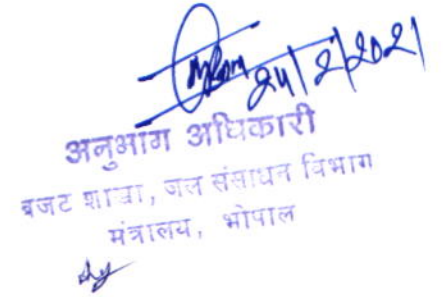 24/2/2021
अनुभाग अधिकारी
बजट शाखा, जल संसाधन विभाग
मंत्रालय, भोपाल